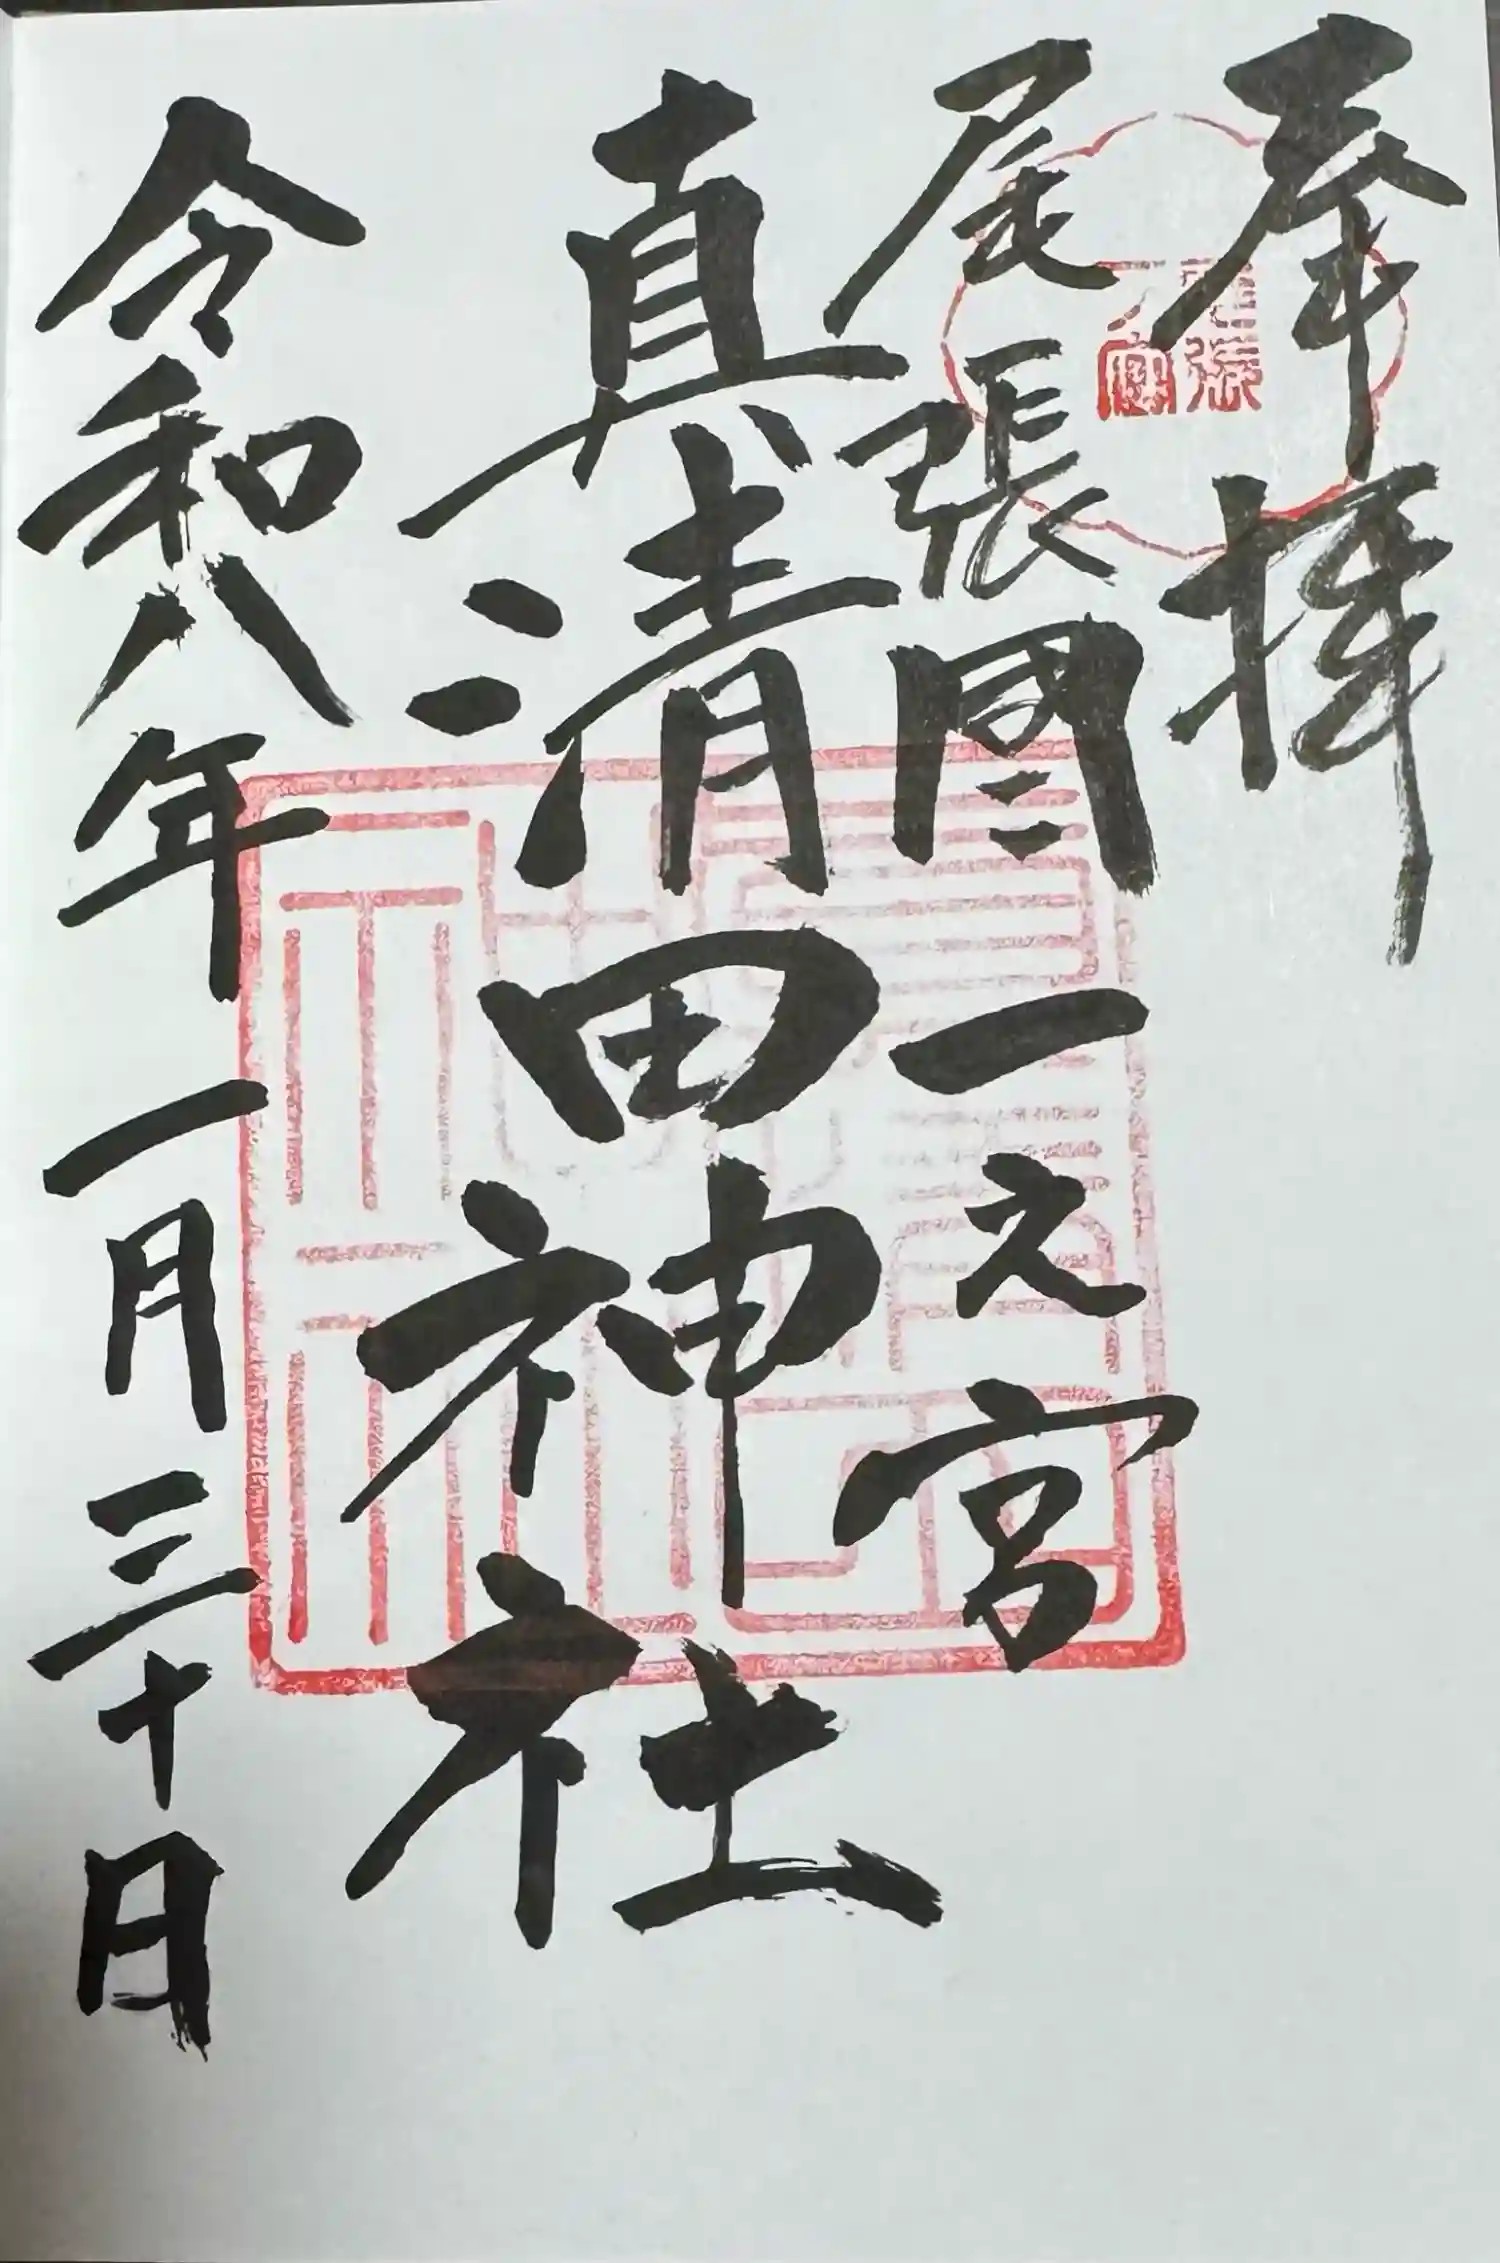 奉拝
尾張國一之宮
真清田神社
令和八年一月三十日
尾張
一宮